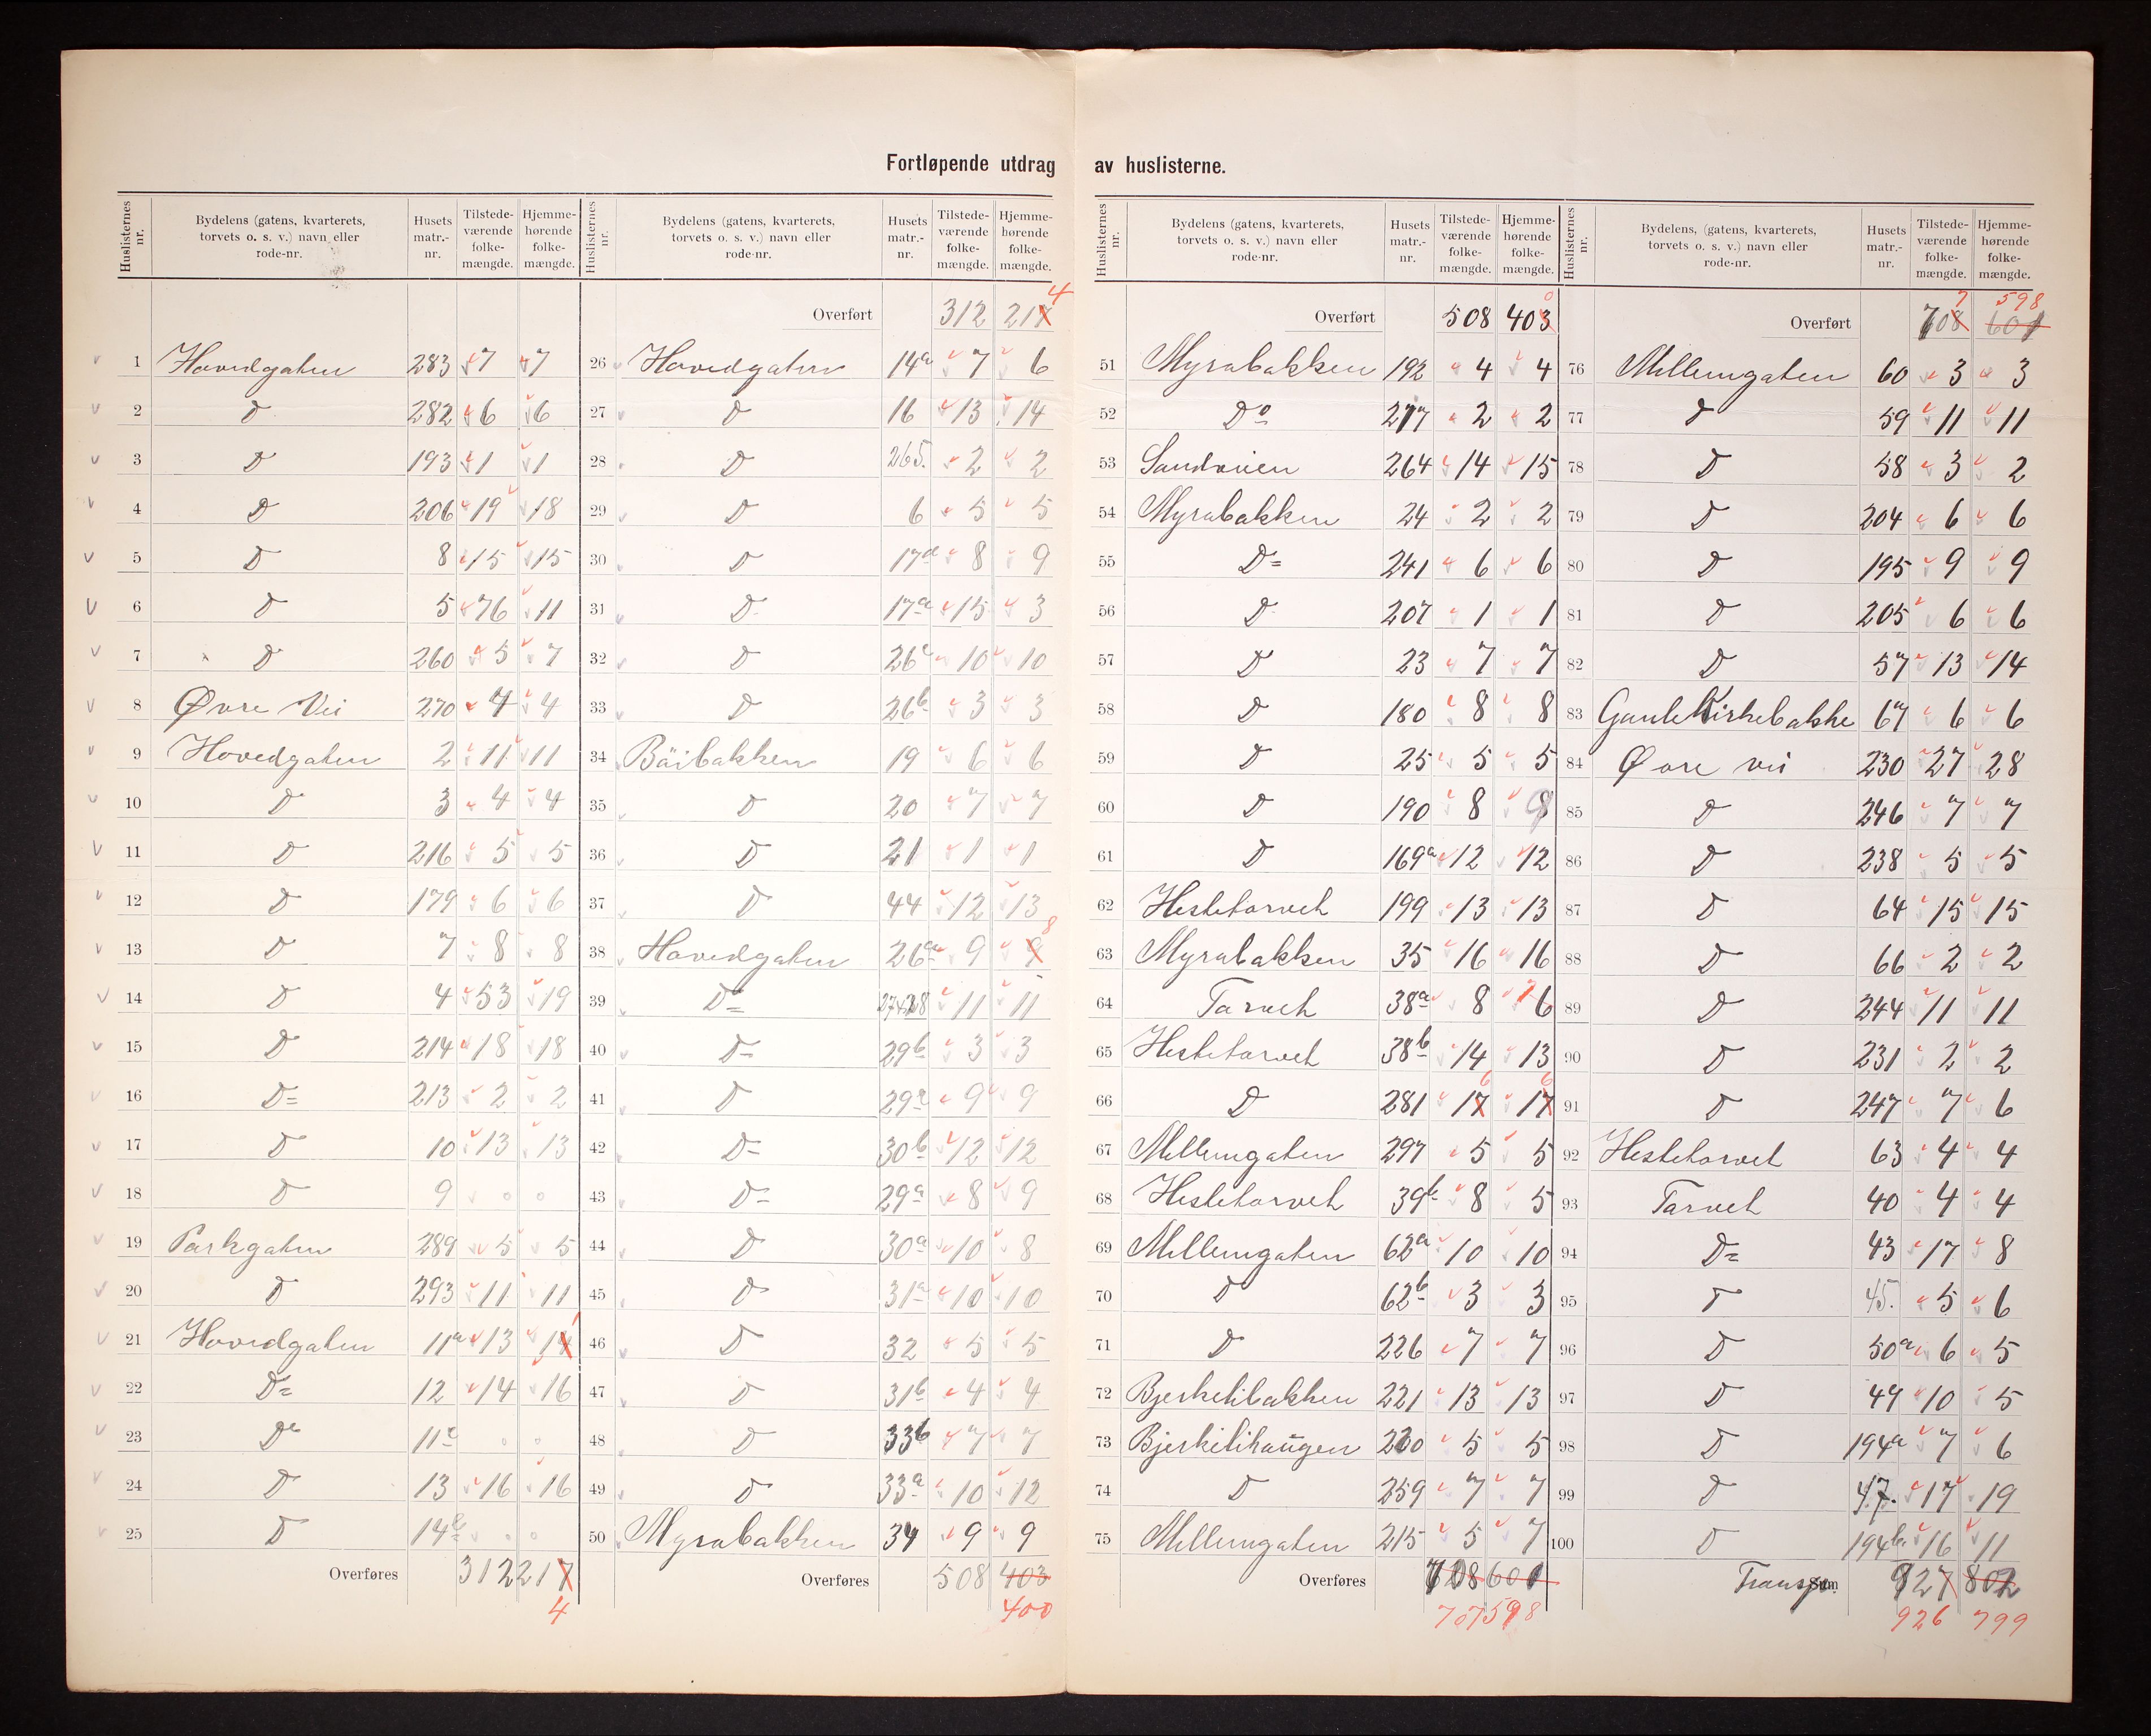 Fortløpende utdrag av huslisterne.
Huslisternes nr. | Bydelens (gatens, kvarterets, torvets o. s. v.) navn eller rode-nr. | Husets matr.-nr. | Tilstede-værende folke-mængde. | Hjemme-hørende folke-mængde.
1 Hovedgaten 283 7 7
2 D 282 6 6
3 D 193 1 1
4 D 206 19 18
5 D 8 15 15
6 D 5 76 11
7 D 260 5 7
8 Øvre Vei 270 4 4
9 Hovedgaten 2 11 11
10 D 3 4 4
11 D 216 5 5
12 D 179 6 6
13 D 7 8 8
14 D 4 53 19
15 D 214 18 18
16 D= 213 2 2
17 D 10 13 13
18 D 9 0 0
19 Parkgaten 289 5 5
20 D 293 11 11
21 Hovedgaten 11a 13 14 1
22 D= 12 14 16
23 Do 11c 0 0
24 D 13 16 16
25 D 14b 0 0
Overføres 312 217
4
Huslisternes nr. | Bydelens (gatens, kvarterets, torvets o. s. v.) navn eller rode-nr. | Husets matr.-nr. | Tilstede-værende folke-mængde. | Hjemme-hørende folke-mængde.
Overført 312 217 4
26 Hovedgaten 14a 7 6
27 D 16 13 14
28 D 265. 2 2
29 D 6 5 5
30 D 17d 8 9
31 D 17a 15 3
32 D 26c 10 10
33 D 26b 3 3
34 Bäibakken 19 6 6
35 D 20 7 7
36 D 21 1 1
37 D 44 12 13
38 Hovedgaten 26a 9 9 8
39 D= 27428 11 11
40 D= 29b 3 3
41 D 29c 9 9
42 D= 30b 12 12
43 D= 29a 8 9
44 D 30a 10 8
45 D 31a 10 10
46 D 32 5 5
47 D 31b 4 4
48 D 33b 7 7
49 D 33a 10 12
50 Myrabakken 34 9 9
Overføres 508 403
400
Huslisternes nr. | Bydelens (gatens, kvarterets, torvets o. s. v.) navn eller rode-nr. | Husets matr.-nr. | Tilstede-værende folke-mængde. | Hjemme-hørende folke-mængde.
Overført 508 403 0
51 Myrabakken 192 4 4
52 Do 277 2 2
53 Sandvien 264 14 15
54 Myrabakken 24 2 2
55 D= 241 6 6
56 D 207 1 1
57 D 23 7 7
58 D 180 8 8
59 D 25 5 5
60 D 190 8 8
61 D 169a 12 12
62 Hestetorvet 199 13 13
63 Myrabakken 35 16 16
64 Torvet 38a 8 6
65 Hestetorvet 38b 14 13
66 D 281 17 6 17 6
67 Mellemgaten 297 5 5
68 Hestetorvet 39b 8 5
69 Mellemgaten 62a 10 10
70 D 62b 3 3
71 D 226 7 7
72 Bjerkelibakken 221 13 13
73 Bjerkelihaugen 220 5 5
74 D 259 7 7
75 Mellemgaten 215 5 7
Overføres 708 601
707 598
Huslisternes nr. | Bydelens, (gatens, kvarterets, torvets o. s. v.) navn eller rode-nr. | Husets matr.-nr. | Tilstede-værende folke-mængde. | Hjemme-hørende folke-mængde.
Overført 708 7 601 598
76 Mellemgaten 60 3 3
77 D 59 11 11
78 D 58 3 2
79 D 204 6 6
80 D 195 9 9
81 D 205 6 6
82 D 57 13 14
83 Gamlekirkebakke 67 6 6
84 Øvre vei 230 27 28
85 D 246 7 7
86 D 238 5 5
87 D 64 15 15
88 D 66 2 2
89 D 244 11 11
90 D 231 2 2
91 D 247 7 6
92 Hestetorvet 63 4 4
93 Torvet 40 4 4
94 D= 43 17 8
95 D 45. 5 6
96 D 50a 6 5
97 D 49 10 5
98 D 194a 7 6
99 D 47. 17 19
100 D 194b 16 11
Transp. 927 802
926 799